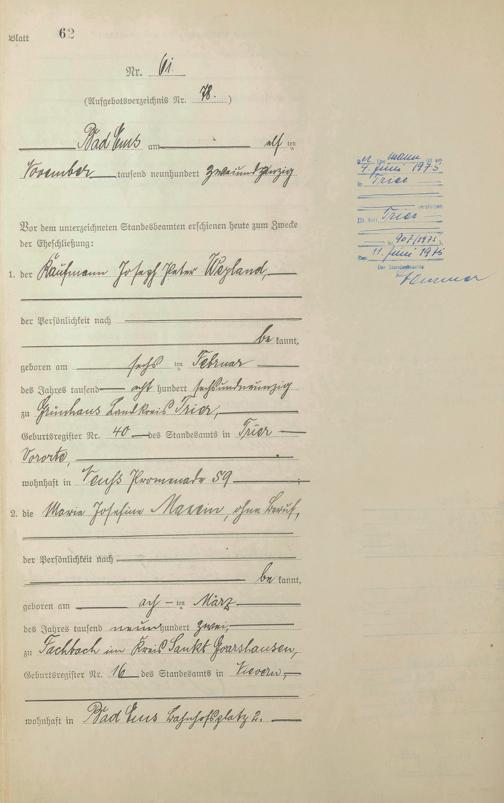 Blatt 62
Nr. 61.
(Aufgebotsverzeichnis Nr. 78.)
Bad Ems am elf ten
November tausend neunhundert zweiundzwanzig
Vor dem unterzeichneten Standesbeamten erschienen heute zum Zwecke
der Eheschließung:
1. der Kaufmann Joseph Peter Weyland,
der Persönlichkeit nach
be kannt,
geboren am sechs ten Februar
des Jahres tausend acht hundert sechsundneunzig
zu Grünhaus Landkreis Trier,
Geburtsregister Nr. 40 des Standesamts in Trier
Vororte,
wohnhaft in Promenade 59
2. die Maria Josefine ohne Beruf,
der Persönlichkeit nach
be kannt,
geboren am ach ten März
des Jahres tausend neun hundert zwei,
zu Fachbach im Kreis Sankt Goarshausen,
Geburtsregister Nr. 16 des Standesamts in Nievern,
wohnhaft in Bad Ems Bahnhofsplatz 2.
mann
7. Juni 1975
in Trier
Trier
907/1975
11. Juni 1975
Der Standesbeamte